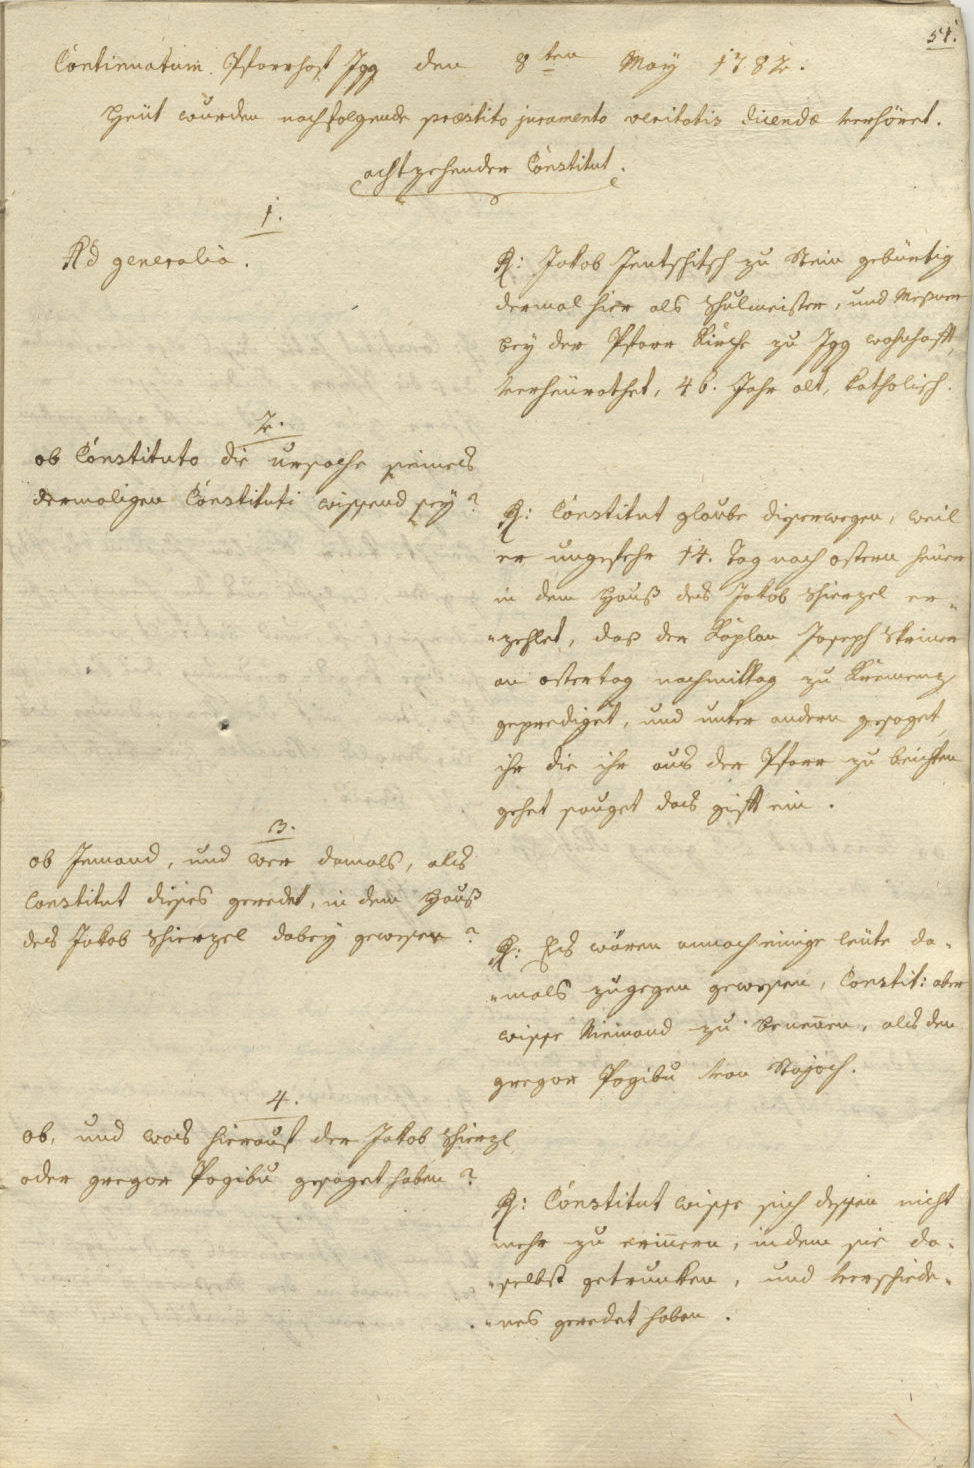 54.
Continuatum Pfarrhof Igg den 8ten May 1782.
Heüt wurden nachfolgende præstito juramento veritatis dicendæ verhöret.
achtzehender Constitut.
1.
Ad generalia.
R: Jakob Jentschitsch zu Stein gebürtig
dermal hier als Schulmeister, und Meßner
bey der Pfarr Kirche zu Igg wohnhafft,
verheürathet, 46. Jahr alt, katholisch.
2.
ob Constituto die ursache seines
dermaligen Constituti wissend sey?
R: Constitut glaube dieserwegen, weil
er ungefehr 14. Tag nach ostern heüer
in dem Hauß des Jakob Schierzel er-
-zehlet, das der Kaplan Joseph Skriner
an ostertag nachmittag zu
geprediget, und unter andern gesaget,
ihr die ihr aus der Pfarr zu beichten
gehet sauget das gifft ein.
3.
ob Jemand, und wer damals, als
Constitut dieses geredet, in dem Hauß
des Jakob Schierzel dabey gewesen?
R: Es wären annoch einige leüte da-
-mals zugegen gewesen, Constit: aber
wisse Niemand zu benennen, als den
gregor Pogibu von Stajach.
4.
ob, und was hierauf der Jakob Schierzl
oder gregor Pogibu gesaget haben?
R: Constitut wisse sich dessen nicht
mehr zu erinnern, indem sie da-
-selbst getrunken, und verschiede-
-nes geredet haben.